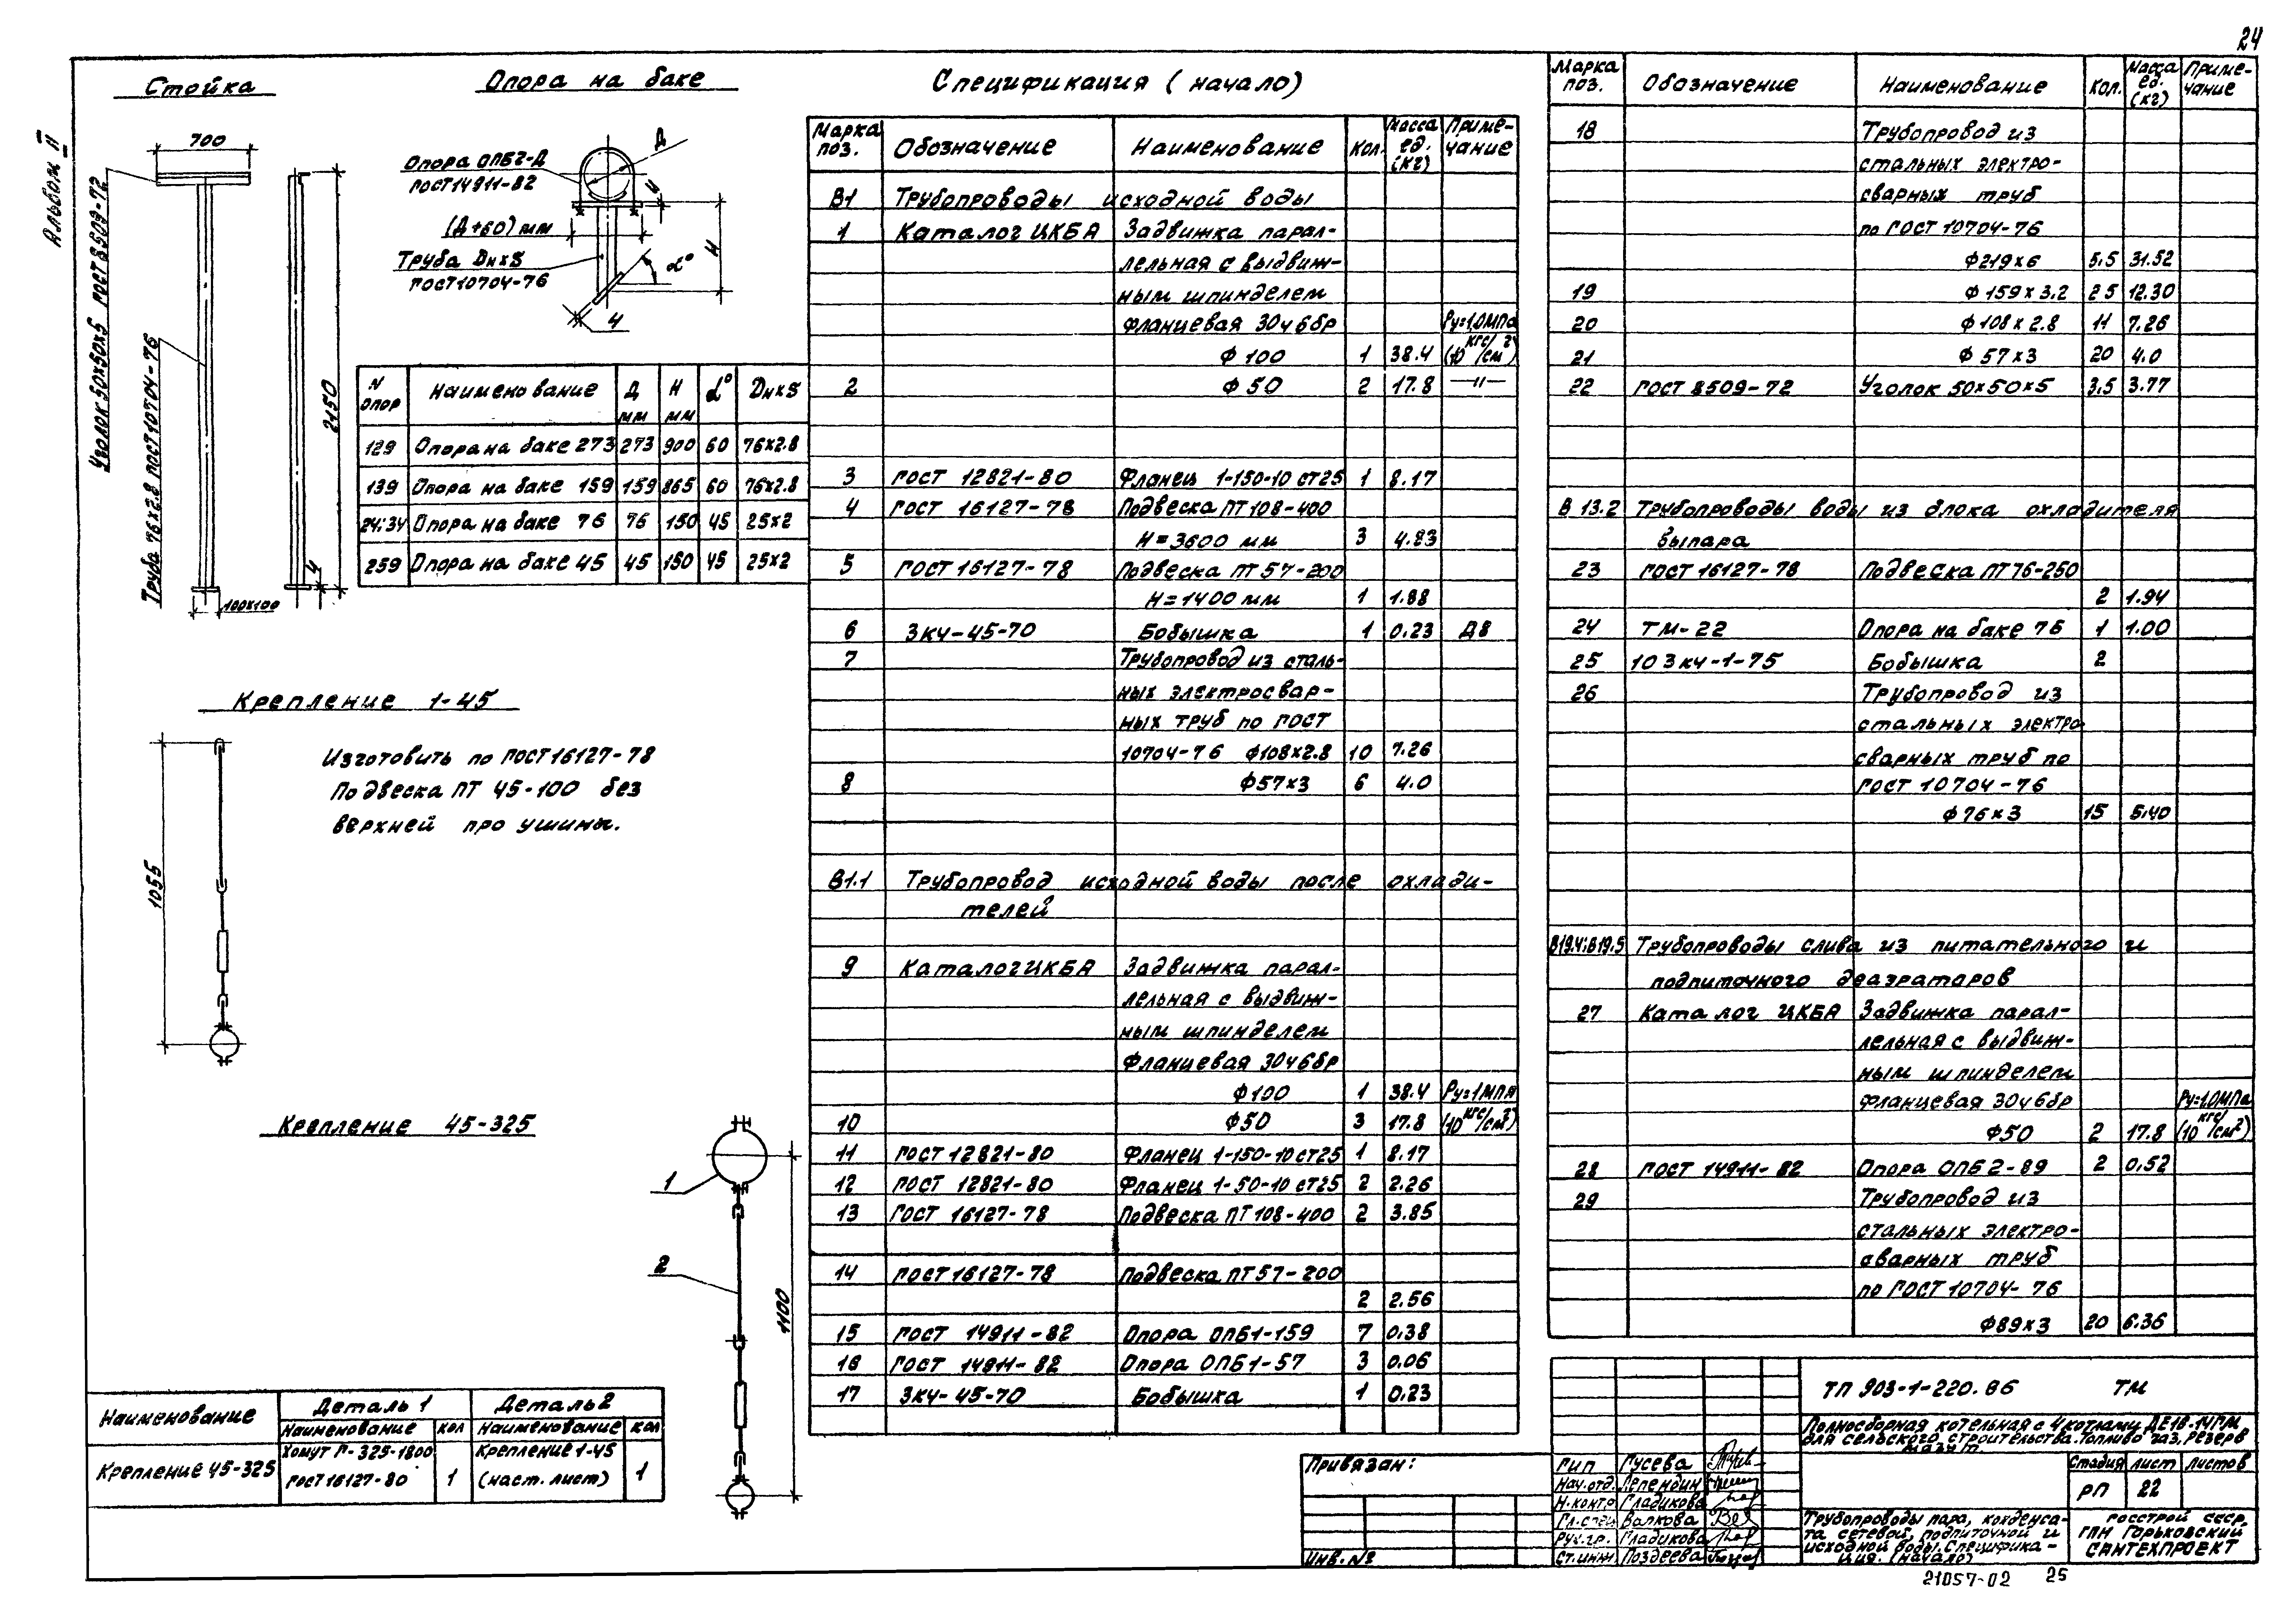 24
Альбом II
Стойка
700
Уголок 50х50х5 ГОСТ 8509-72
Труба 76х2.8 ГОСТ 10704-76
2150
4
100х100
Опора на баке
Опора ОПБ2-Д
ГОСТ 14911-82
Д
(Д+60) мм
Труба Dнхs
ГОСТ 10704-76
Н
α°
4
N опор | Наименование | Д мм | Н мм | α° | Dнхs
129 | Опора на баке 273 | 273 | 900 | 60 | 76х2.8
139 | Опора на баке 159 | 159 | 865 | 60 | 76х2.8
24;34 | Опора на баке 76 | 76 | 150 | 45 | 25х2
259 | Опора на баке 45 | 45 | 150 | 45 | 25х2
Крепление 1-45
1055
Изготовить по ГОСТ 16127-78
Подвеска ПТ 45-100 без
верхней проушины.
Крепление 45-325
1
2
1100
Наименование | Деталь 1 | Деталь 2
Наименование | кол | Наименование | кол
Крепление 45-325 | Хомут Г-325-1800 ГОСТ 16127-80 | 1 | Крепление 1-45 (наст. лист) | 1
Спецификация (начало)
Марка поз. | Обозначение | Наименование | Кол. | Масса ед. (кг) | Примечание
В1 Трубопроводы исходной воды
1 Каталог ЦКБА Задвижка парал-
лельная с выдвиж-
ным шпинделем
фланцевая 30ч6бр Ру=1,0МПа
Ф 100 1 38.4 (10 кгс/см²)
2 Ф 50 2 17.8 —"—
3 ГОСТ 12821-80 Фланец 1-150-10 ст25 1 8.17
4 ГОСТ 16127-78 Подвеска ПТ 108-400
Н=3600 мм 3 4.83
5 ГОСТ 16127-78 Подвеска ПТ 57-200
Н=1400 мм 1 1.88
6 ЗК4-45-70 Бобышка 1 0.23 Д8
7 Трубопровод из сталь-
ных электросвар-
ных труб по ГОСТ
10704-76 Ф108х2.8 10 7.26
8 Ф57х3 6 4.0
В1.1 Трубопровод исходной воды после охлади-
телей
9 Каталог ЦКБА Задвижка парал-
лельная с выдвиж-
ным шпинделем
фланцевая 30ч6бр
Ф100 1 38.4 Ру=1МПа
10 Ф50 3 17.8 (10 кгс/см²)
11 ГОСТ 12821-80 Фланец 1-150-10 ст25 1 8.17
12 ГОСТ 12821-80 Фланец 1-50-10 ст25 2 2.26
13 ГОСТ 16127-78 Подвеска ПТ 108-400 2 3.85
14 ГОСТ 16127-78 Подвеска ПТ 57-200
2 2.56
15 ГОСТ 14911-82 Опора ОПБ1-159 7 0.38
16 ГОСТ 14911-82 Опора ОПБ1-57 3 0.06
17 ЗК4-45-70 Бобышка 1 0.23
Марка поз. | Обозначение | Наименование | Кол. | Масса ед. (кг) | Примечание
18 Трубопровод из
стальных электро-
сварных труб
по ГОСТ 10704-76
Ф219х6 5.5 31.52
19 Ф 159х3.2 25 12.30
20 Ф 108х2.8 11 7.26
21 Ф 57х3 20 4.0
22 ГОСТ 8509-72 Уголок 50х50х5 3.5 3.77
В 13.2 Трубопроводы воды из блока охладителя
выпара
23 ГОСТ 16127-78 Подвеска ПТ 76-250
2 1.94
24 ТМ-22 Опора на баке 76 1 1.00
25 10 ЗК4-1-75 Бобышка 2
26 Трубопровод из
стальных электро
сварных труб по
ГОСТ 10704-76
Ф 76х3 15 5.40
В19.4;В19.5 Трубопроводы слива из питательного и
подпиточного деаэраторов
27 Каталог ЦКБА Задвижка парал-
лельная с выдвиж-
ным шпинделем
фланцевая 30ч6бр Ру=1,0МПа
Ф50 2 17.8 (10 кгс/см²)
28 ГОСТ 14911-82 Опора ОПБ2-89 2 0.52
29 Трубопровод из
стальных электро-
сварных труб
по ГОСТ 10704-76
Ф89х3 20 6.36
Привязан:
Инв. №
ГИП Гусева
Нач.отд. Лепендин
Н.контр Гладикова
Гл.спец Валкова
Рук.гр. Гладикова
Ст.инж. Поздеева
ТП 903-1-220.86 ТМ
Полносборная котельная с 4 котлами ДЕ16-14ГМ
для сельского строительства. Топливо газ, резерв
мазут
Стадия | Лист | Листов
РП | 22
Трубопроводы пара, конденса-
та сетевой, подпиточной и
исходной воды. Специфика-
ция. (начало)
Госстрой СССР
ГПИ Горьковский
САНТЕХПРОЕКТ
21057-02 25